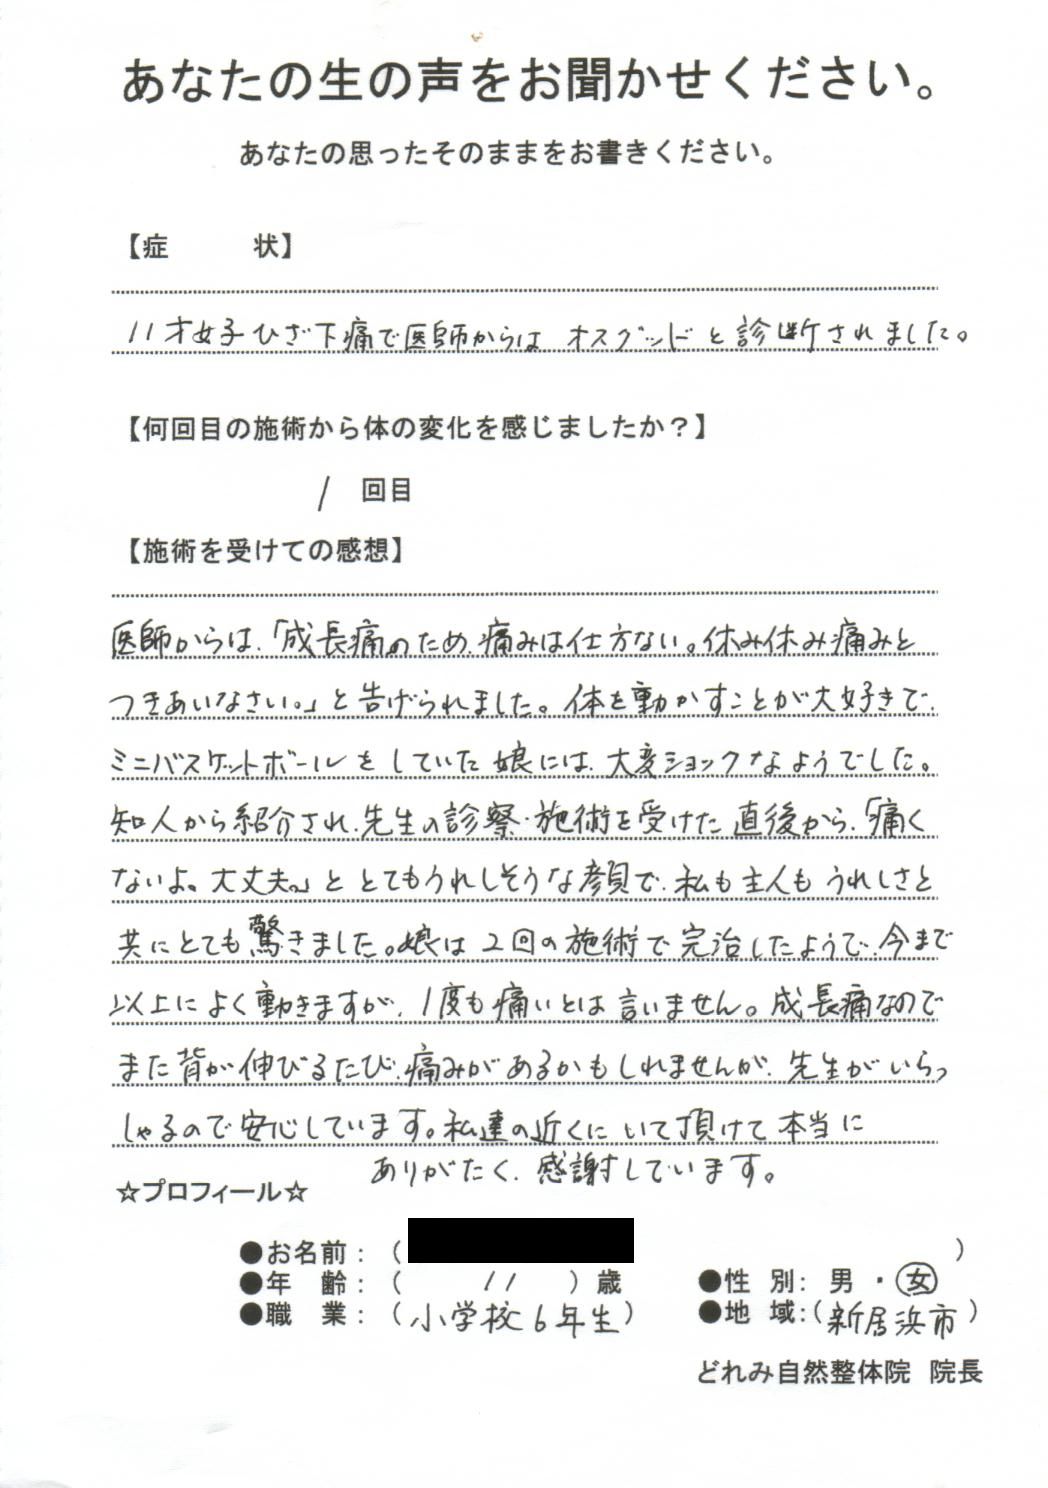 あなたの生の声をお聞かせください。
あなたの思ったそのままをお書きください。
【症　　　状】
11才女子ひざ下痛で医師からは オスグッドと診断されました。
【何回目の施術から体の変化を感じましたか？】
1 回目
【施術を受けての感想】
医師からは、「成長痛のため、痛みは仕方ない。休み休み痛みと
つきあいなさい。」と告げられました。体を動かすことが大好きで、
ミニバスケットボールをしていた娘には、大変ショックなようでした。
知人から紹介され、先生の診察・施術を受けた直後から、「痛く
ないよ。大丈夫。」と とてもうれしそうな顔で、私も主人もうれしさと
共にとても驚きました。娘は2回の施術で完治したようで、今まで
以上によく動きますが、1度も痛いとは言いません。成長痛なので
また背が伸びるたび、痛みがあるかもしれませんが、先生がいらっ
しゃるので安心しています。私達の近くにいて頂けて本当に
ありがたく、感謝しています。
☆プロフィール☆
●お名前：（　　　）
●年　齢：（　11　）歳　●性　別：男・女
●職　業：（小学校6年生）　●地　域：（新居浜市）
どれみ自然整体院　院長